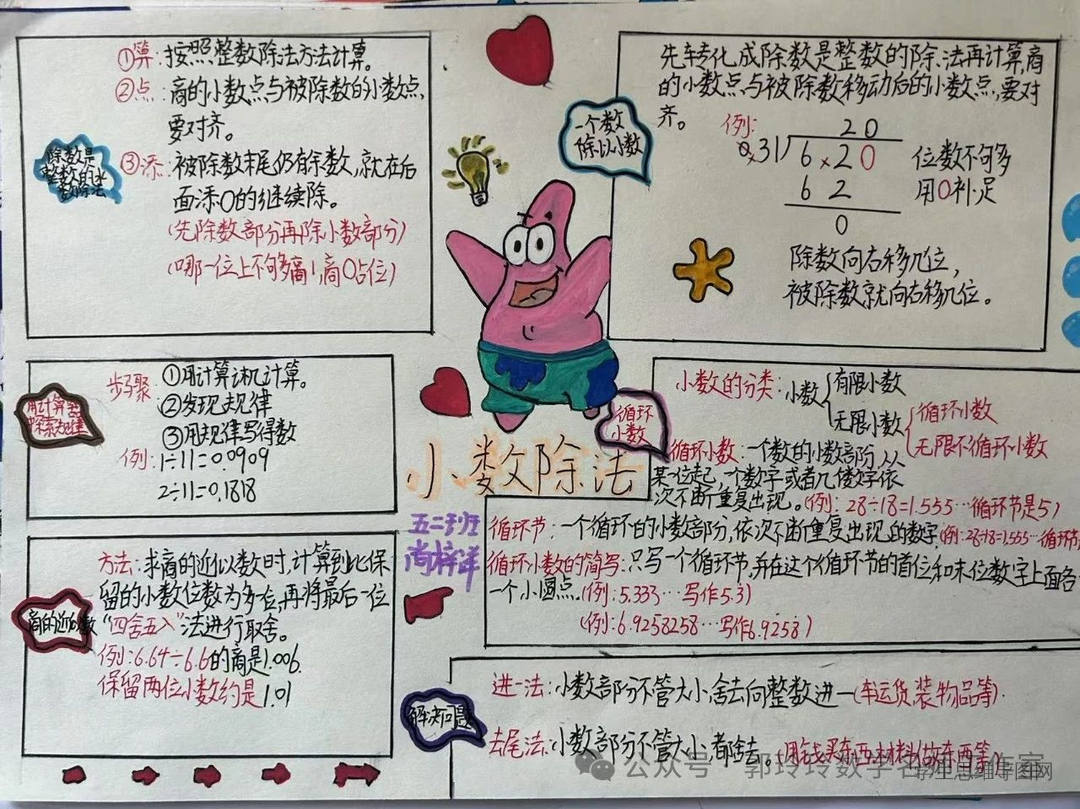 除数是
整数的小
数除法
①算:按照整数除法方法计算。
②点:商的小数点与被除数的小数点,
要对齐。
③添:被除数末尾仍有余数,就在后
面添0的继续除。
(先除数部分再除小数部分)
(哪一位上不够商1,商0占位)
一个数
除以小数
先转化成除数是整数的除法再计算,商
的小数点与被除数移动后的小数点,要对
齐。
例:
20
0.31 6.20
62
0
位数不够多
用0补足
除数向右移几位,
被除数就向右移几位。
用计算器
探索规律
步骤:①用计算机计算。
②发现规律
③用规律写得数
例:1÷11=0.0909
2÷11=0.1818
循环
小数
小数的分类:小数 有限小数
无限小数 循环小数
无限不循环小数
循环小数:一个数的小数部分,从
某一位起,一个数字或者几个数字依
次不断重复出现。(例:28÷18=1.555…循环节是5)
循环节:一个循环的小数部分,依次不断重复出现的数字(例:28÷18=1.555…循环节
循环小数的简写:只写一个循环节,并在这个循环节的首位和末位数字上面各
一个小圆点。(例:5.333…写作5.3)
(例:6.9258258…写作6.9258)
小数除法
五二班
商的近似数
方法:求商的近似数时,计算到比保
留的小数位数为多一位,再将最后一位
“四舍五入”法进行取舍。
例:6.64÷6.6的商是1.006.
保留两位小数约是1.01
解决问题
进一法:小数部分不管大小,舍去向整数进一(车运货,装物品等)
去尾法:小数部分不管大小,都舍去。用钱买东西,材料做东西等
公众号·郭玲玲数学名师工作室
学生思维导图网